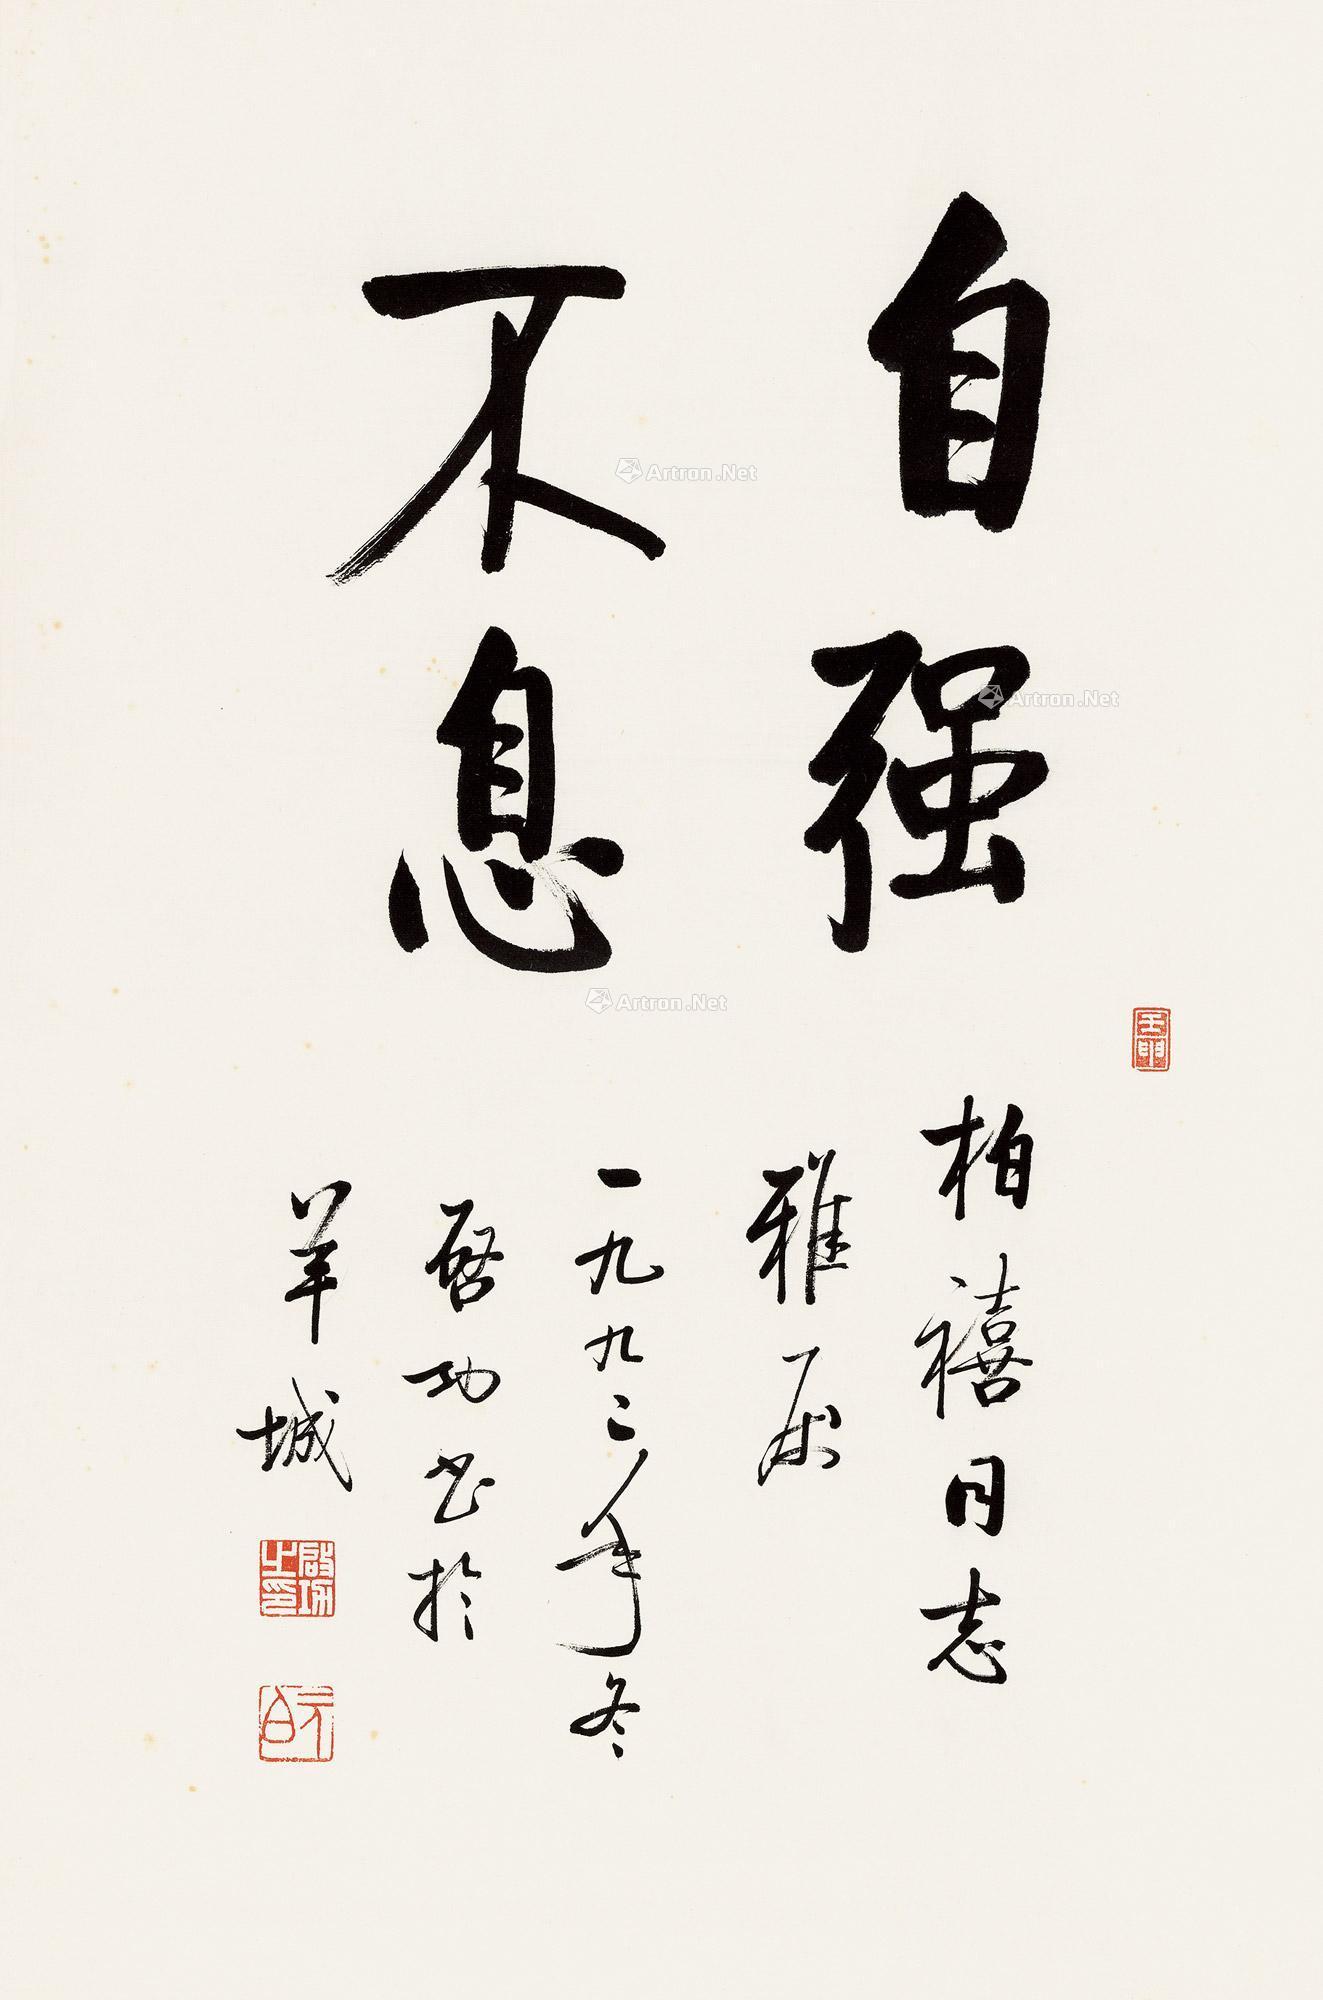 自强
不息
柏禧同志
雅属
一九九二年冬
启功书于
羊城
启功之印
元白
Artron.Net
Artron.Net
Artron.Net